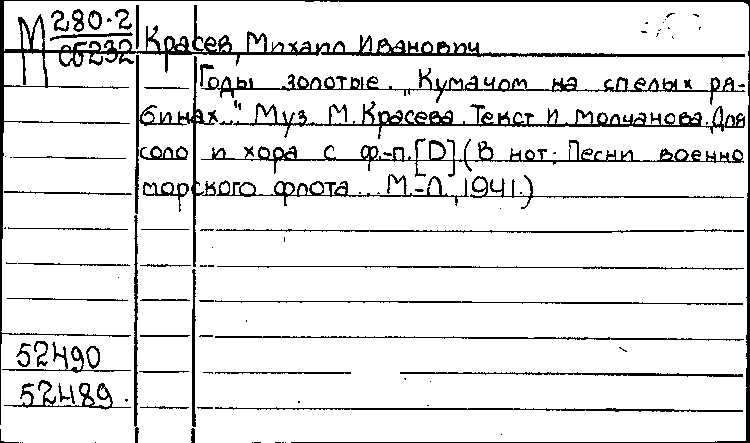 М 280·2
Сб232
Красев, Михаил Иванович
Годы золотые. „Кумачом на спелых ря-
бинах..." Муз. М. Красева. Текст И. Молчанова. Для
соло и хора с ф.-п. [D] (В нот: Песни военно
морского флота. М.-Л., 1941.)
52490
52489.